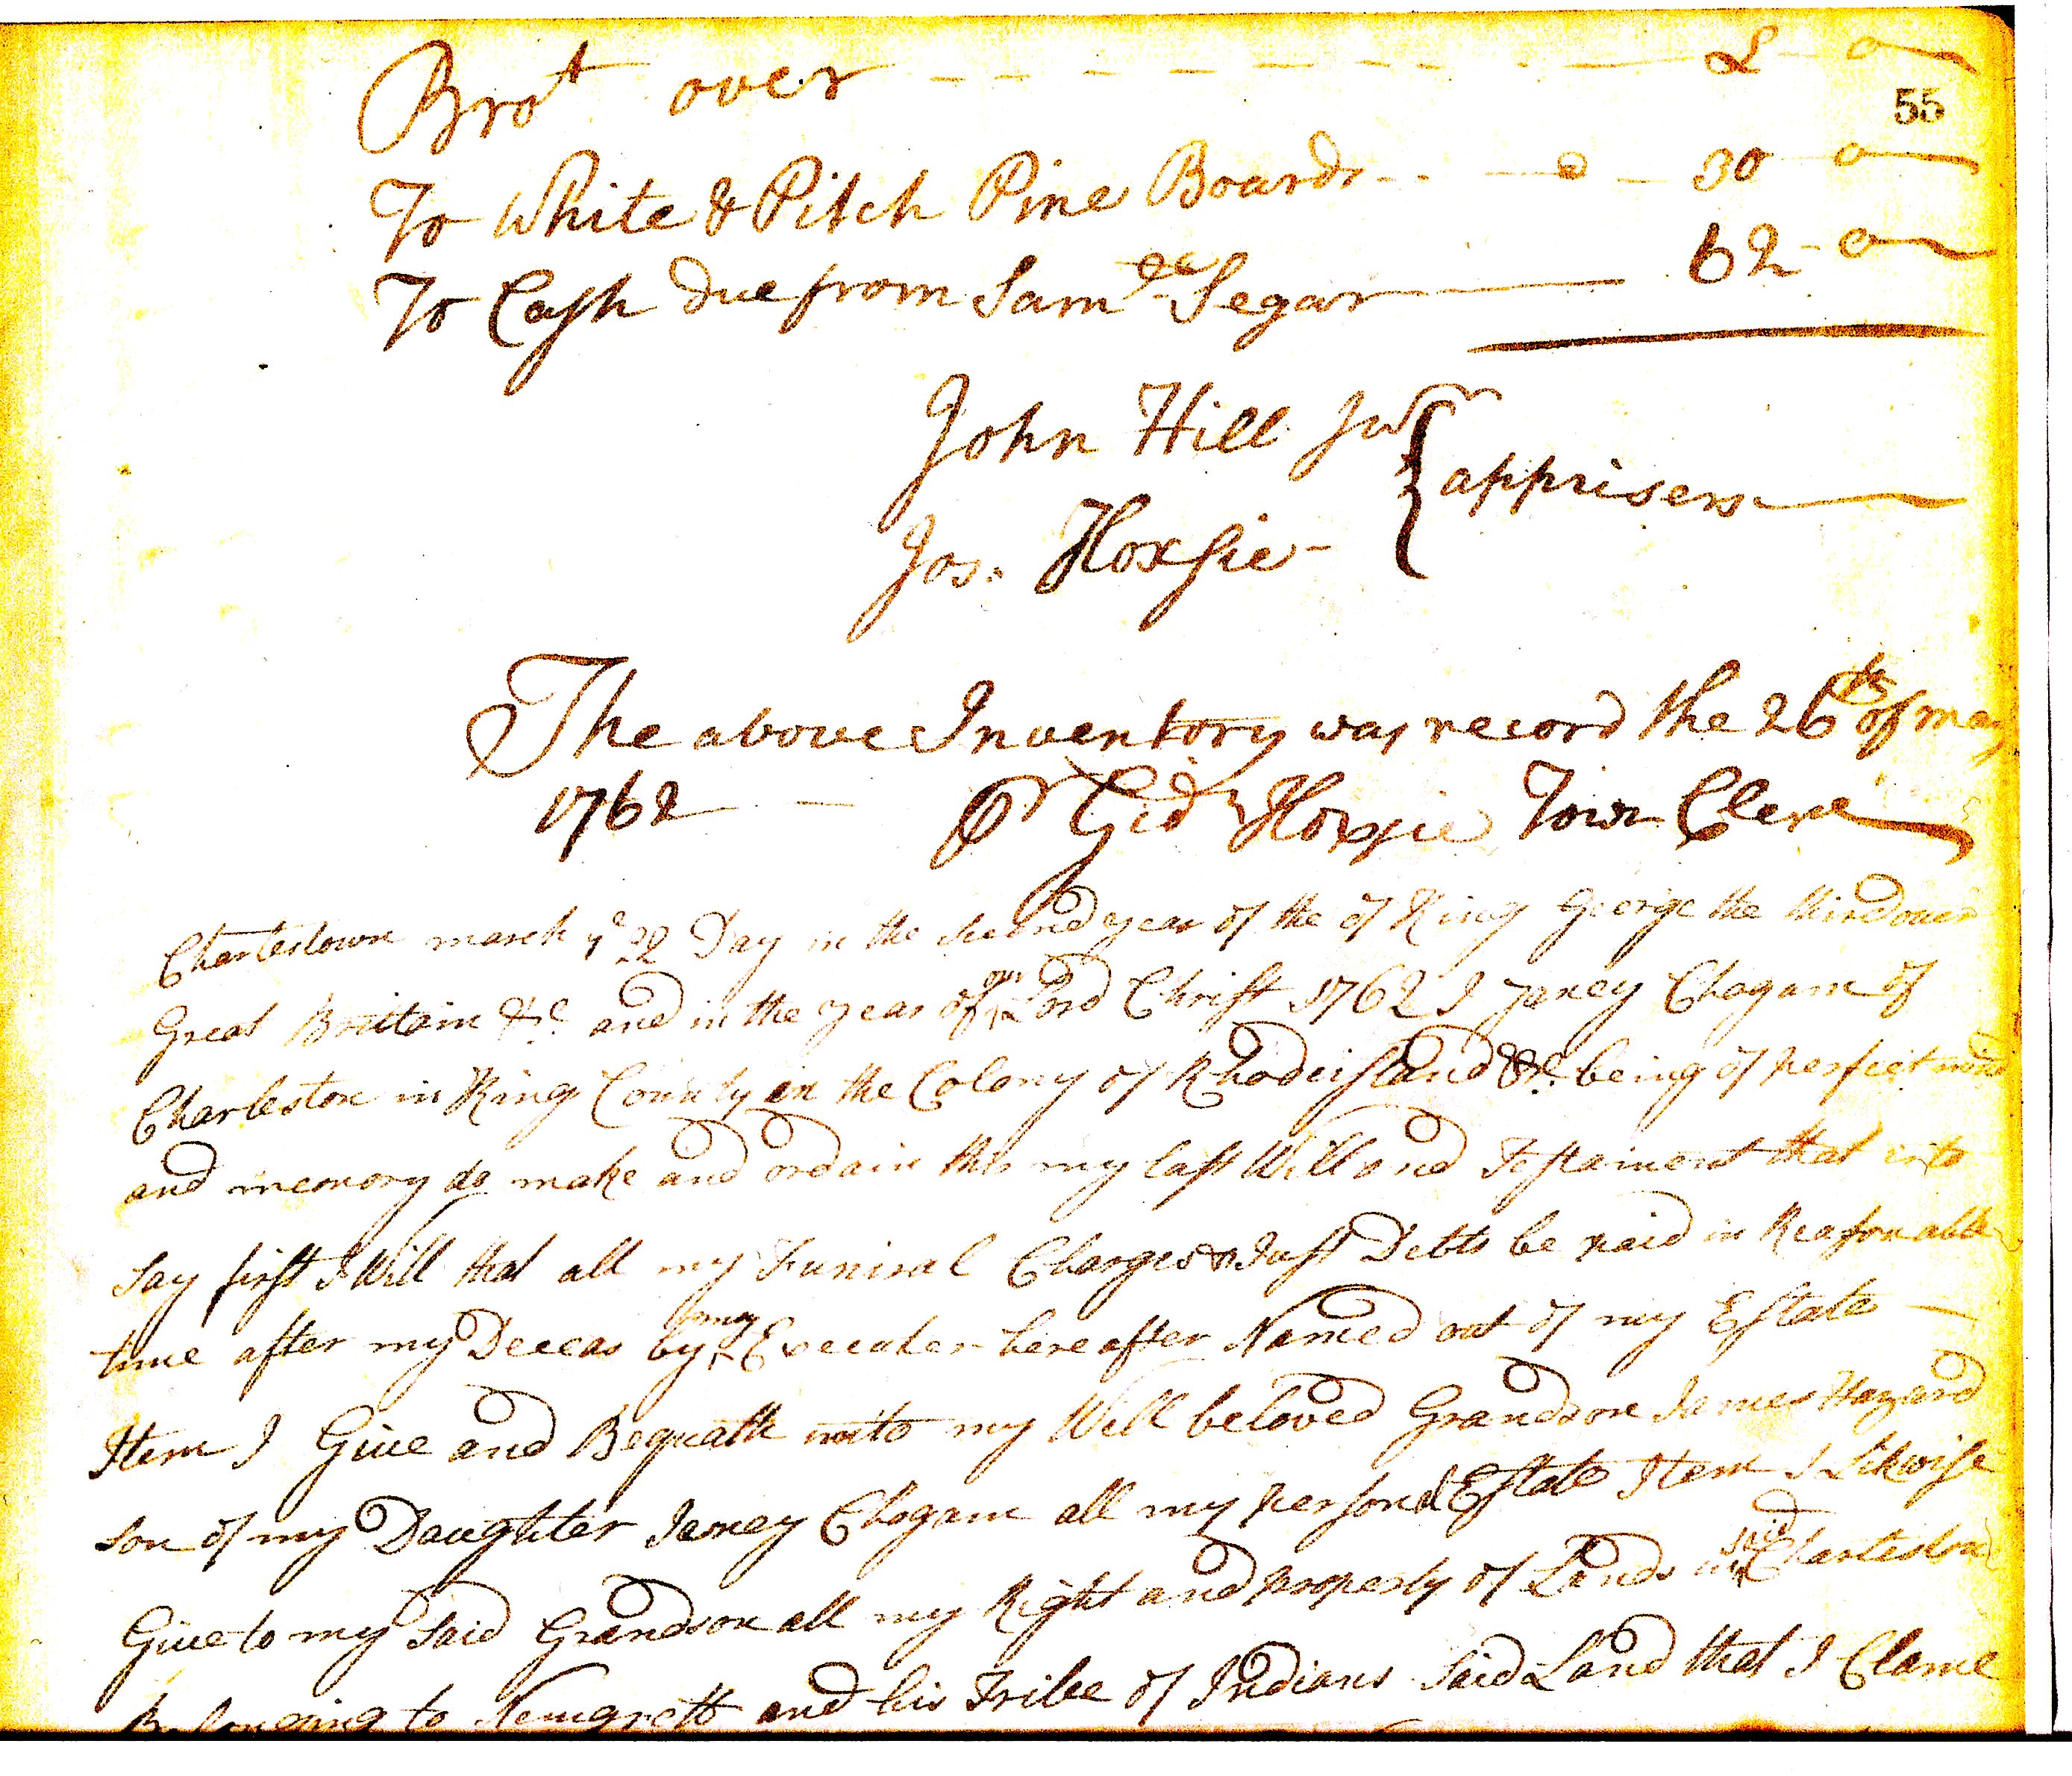 Brot over - - - - - - - - £ - 0
55
To White & Pitch Pine Boards - - - 30 0
To Cash Due from Saml Segar 62 - 0
John Hill Junr
apprisers
Jos. Hoxsie
The above Inventory was record the 26th of may
1762 - Pr Gidn Hoxsie Town Clerk
Charlestown march ye 22 Day in the Second year of the of King George the third over
Great Brittain &c and in the year of our Lord Christ 1762 I Janey Chogam of
Charleston in King County in the Colony of Rhodeisland &c. being of perfect mind
and memory do make and ordain this my last Will and Testament that is to
Say first I Will that all my Funiral Charges & Just Debts be paid in Reasonable
time after my Deceas by my Executer hereafter Named out of my Estate
Item I Give and Bequath unto my Well beloved Grandson James Hazard
Son of my Daughter Janey Chogam all my personal Estate Item I Likwise
Give to my Said Grandson all my Right and property of Lands in said Charleston
Belonging to Nemgrett and his Tribe of Indians Said Land that I Clame